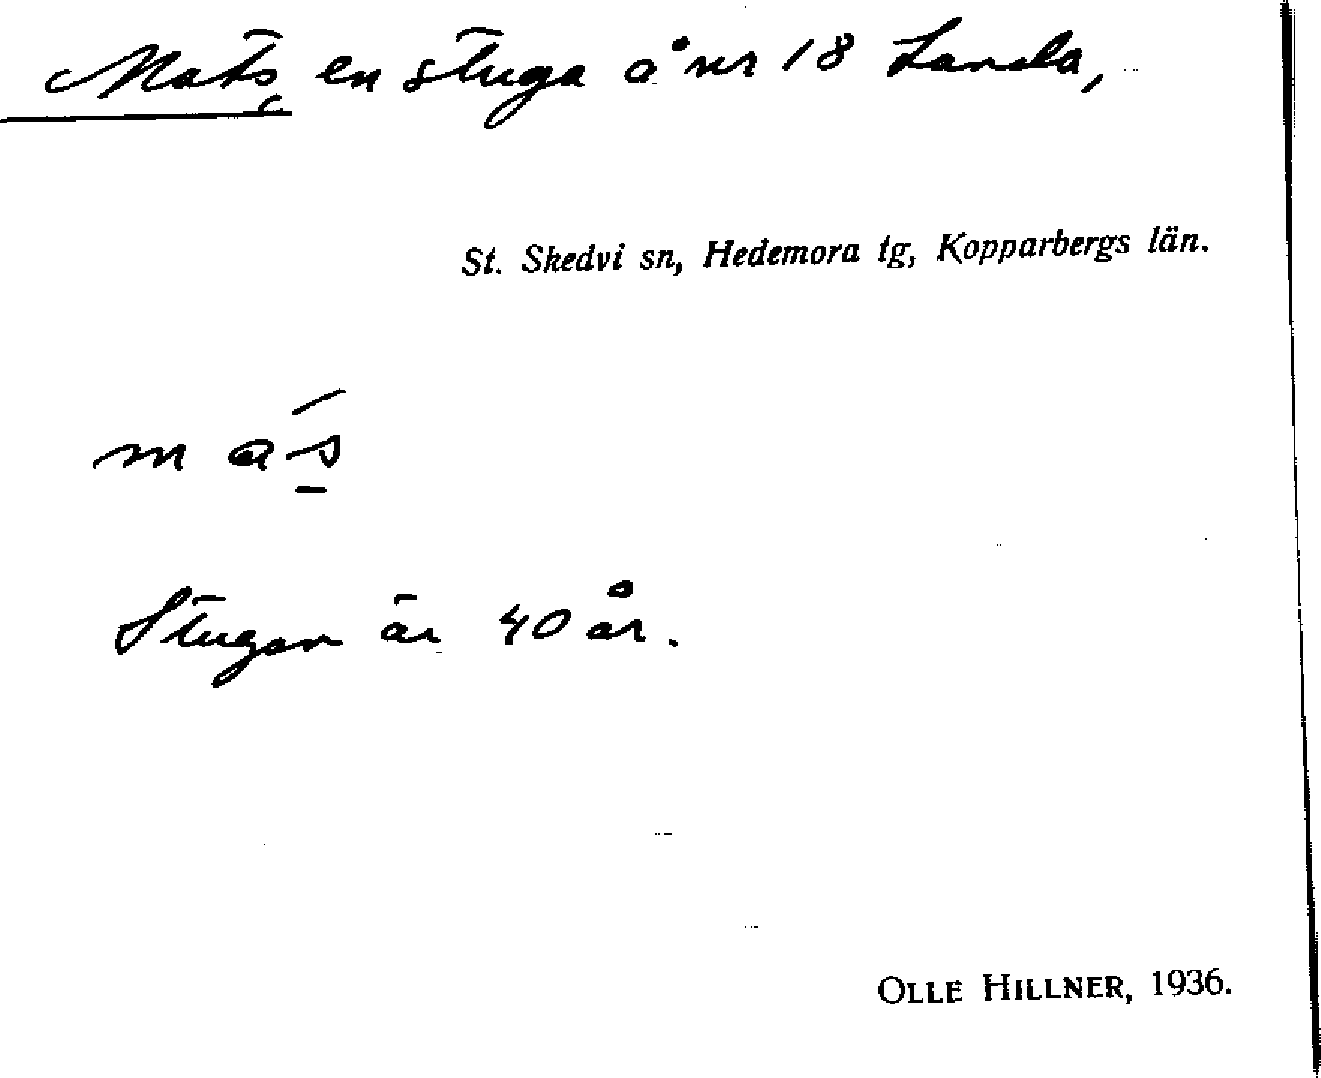 Mats en stuga å nr 18 Landa,
St. Skedvi sn, Hedemora tg, Kopparbergs län.
Stugan är 40 år.
OLLE HILLNER, 1936.